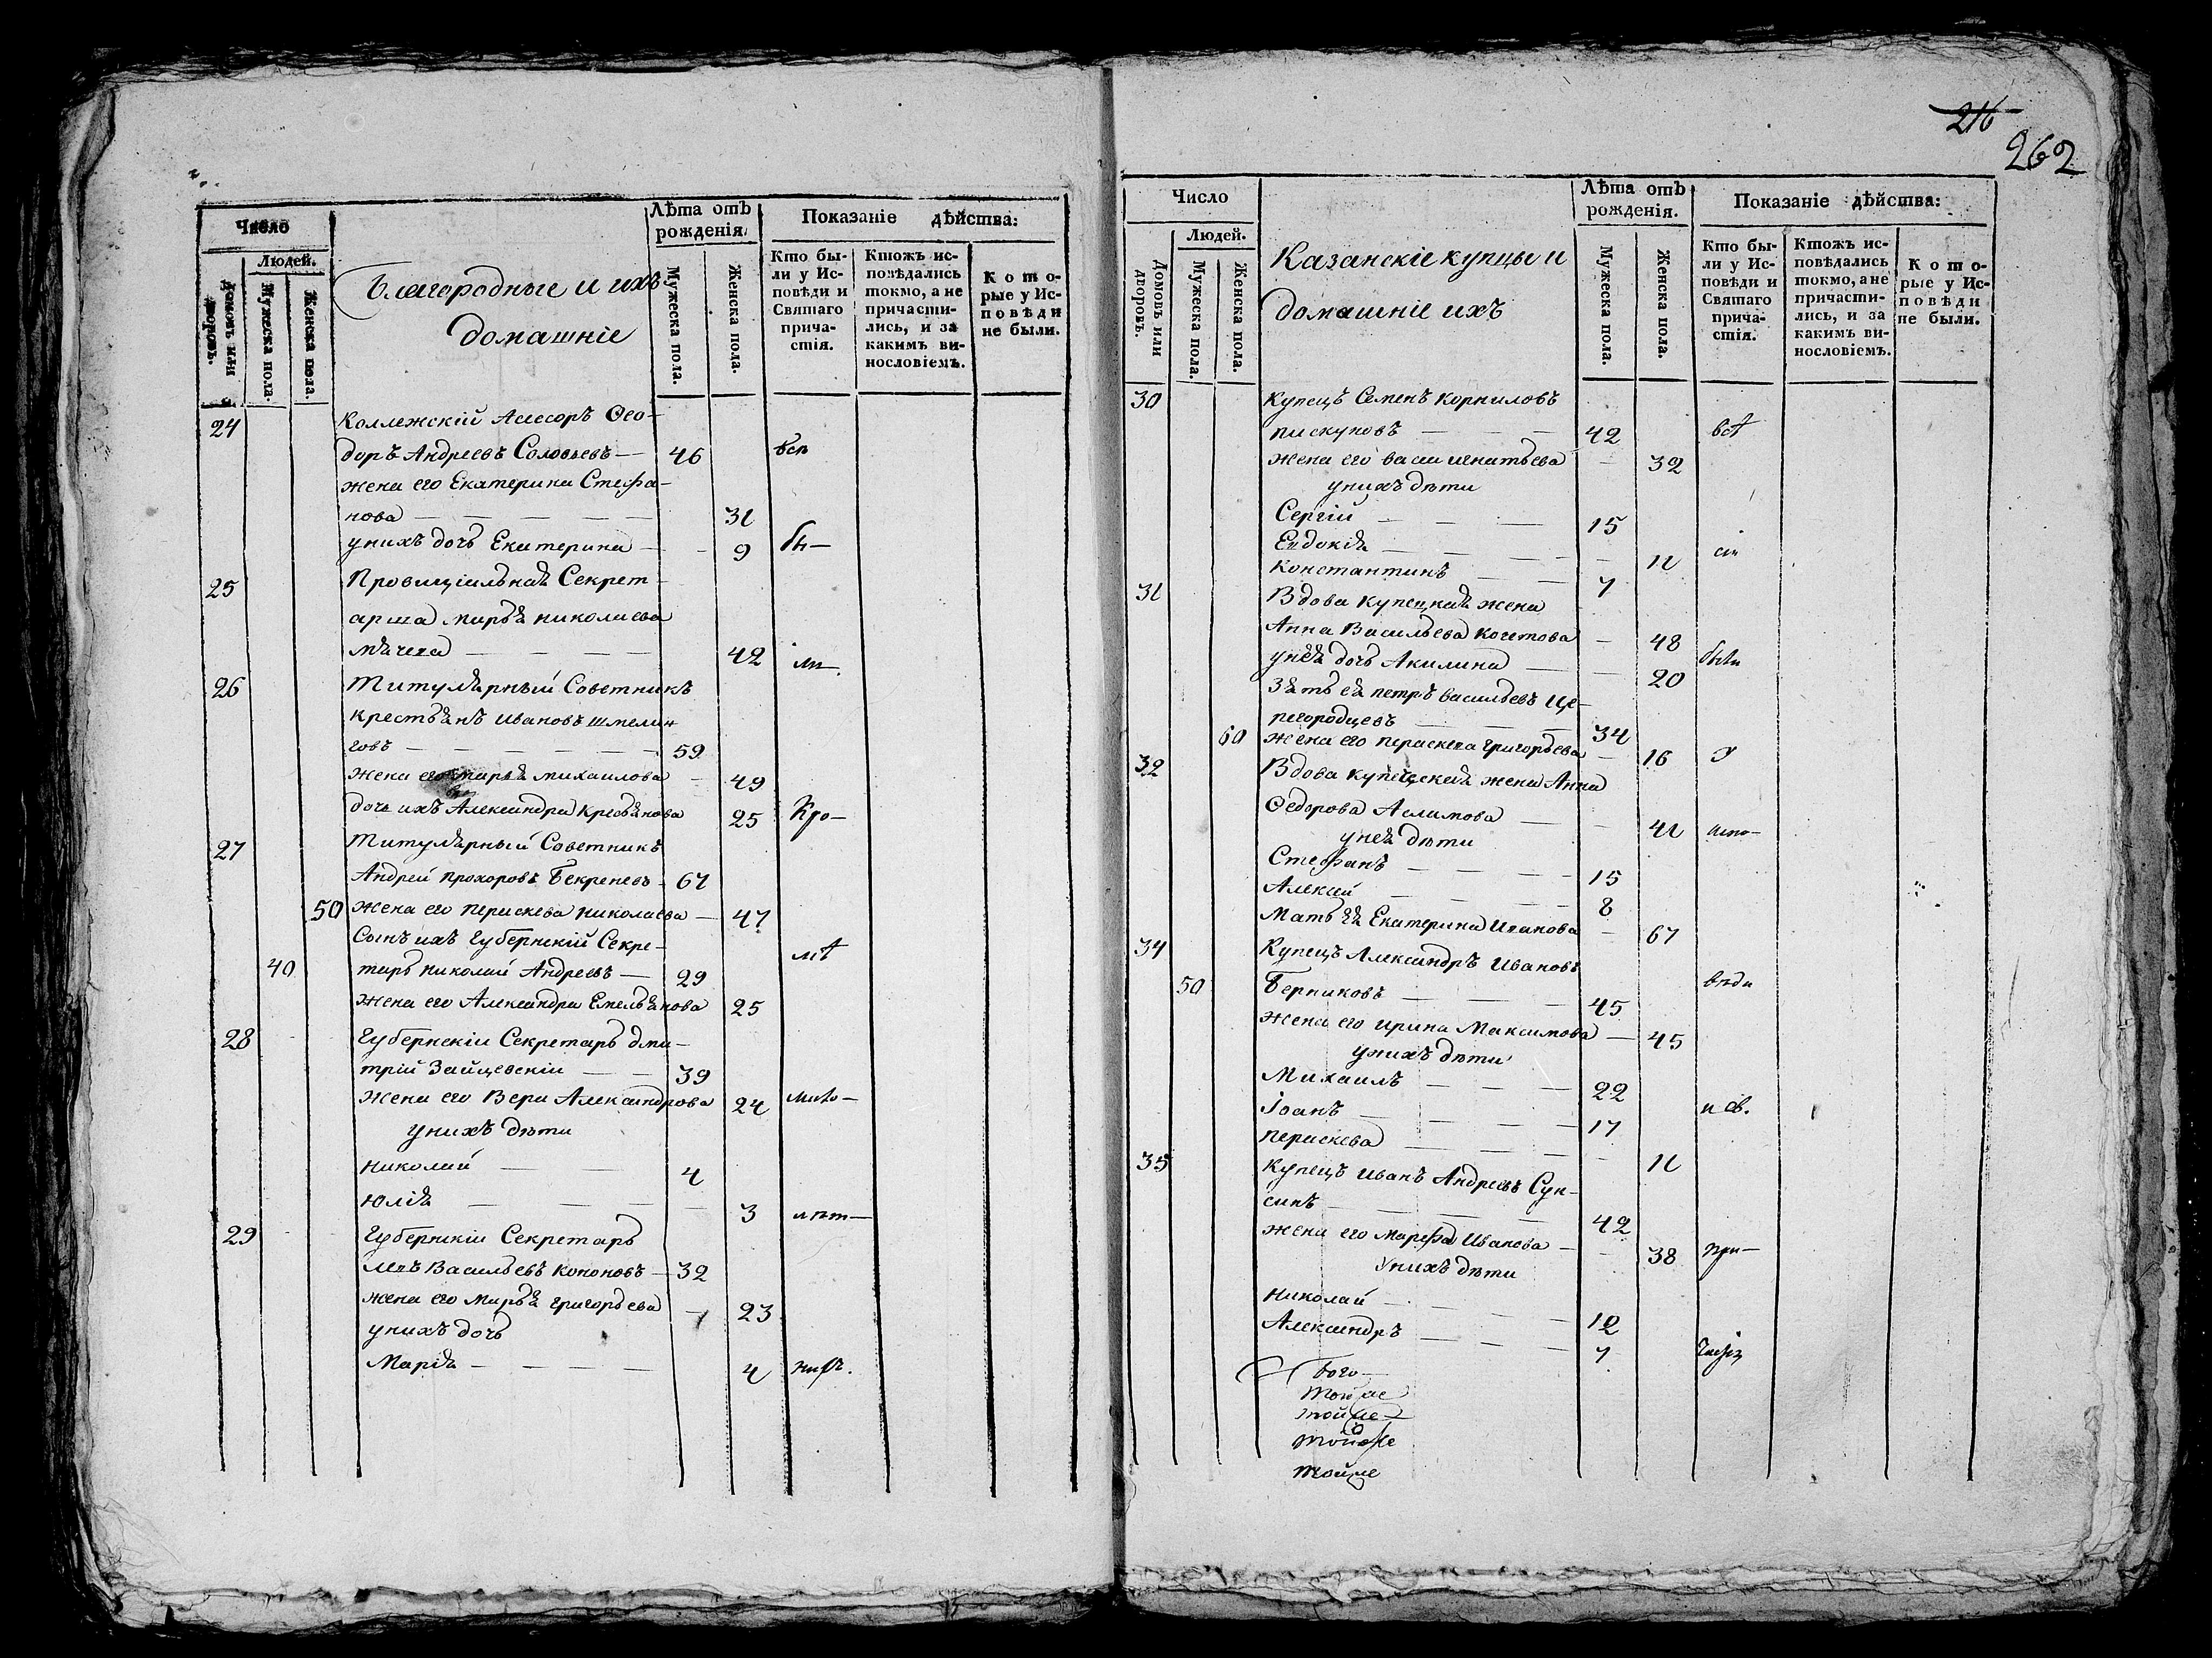 216
262
Число
Людей.
Домовъ или дворовъ.
Мужеска пола.
Женска пола.
Благородные и ихъ
домашніе
Лѣта отъ
рожденія.
Мужеска пола.
Женска пола.
Показаніе дѣйства:
Кто бы-
ли у Ис-
повѣди и
Святаго
прича-
стія.
Ктожъ ис-
повѣдались
токмо, а не
причасти-
лись, и за
какимъ ви-
нословіемъ.
Кото-
рые у Ис-
повѣди
не были.
24 Коллежскій Ассесоръ Ѳео-
доръ Андреевъ Соловьевъ — 46
жена его Екатерина Стефа-
нова — 31
у нихъ дочь Екатерина — 9
25 Провинціальная Секрет-
арша Марья Николаева
42
26 Титулярный Советникъ
Крестьянъ Ивановъ Шмелин
говъ — 59
жена его Марья Михаилова — 49
дочь ихъ Александра Кресьянова 25 Кро—
27 Титулярный Советникъ
Андрей Прохоровъ Бекреневъ — 67
50 жена его Переасковa Николаева — 47
Сынъ ихъ Губернскій Секре-
40 тарь Николай Андреевъ — 29
жена его Александра Емельянова 25
28 Губернскіи Секретарь Дми-
трій Зайцевскіи — 39
жена его Вера Александрова 24
у нихъ дѣти
Николай — 4
Юлія — 3
29 Губернскіи Секретарь
Левъ Васильевъ Кононовъ — 32
жена его Марья Григорьева — 23
у нихъ дочь
Марія — 4
Число
Людей.
Домовъ или дворовъ.
Мужеска пола.
Женска пола.
Казанскіе купцы и
домашніе ихъ
Лѣта отъ
рожденія.
Мужеска пола.
Женска пола.
Показаніе дѣйства:
Кто бы-
ли у Ис-
повѣди и
Святаго
прича-
стія.
Ктожъ ис-
повѣдались
токмо, а не
причасти-
лись, и за
какимъ ви-
нословіемъ.
Кото-
рые у Ис-
повѣди
не были.
30 Купецъ Семенъ Корниловъ
Пискуновъ — 42
жена его Васи Игнатьева — 32
у нихъ дѣти
Сергій — 15
Евдокія — 11
Константинъ — 7
31 Вдова купецкая жена
Анна Васильева Кочетова — 48
у нея дочь Акилина — 20
Зять ея Петръ Васильевъ Це-
регородцевъ — 34
60 жена его Параскева Григорьева — 16
32 Вдова купецская жена Анна
Ѳедорова Аслимова — 41
у нея дѣти
Стефанъ — 15
Алексій — 8
Мать ея Екатерина Иванова — 67
34 Купецъ Александръ Ивановъ
50 Берниковъ — 45
жена его Ирина Максимова — 45
у нихъ дѣти
Михаилъ — 22
Іоанъ — 17
Параскева — 11
35 Купецъ Иванъ Андреевъ Сук-
синъ — 42
жена его Марфа Иванова — 38 при—
у нихъ дѣти
Николай — 12
Александръ — 7
Бого—
тойже
тойже
тойже
тойже